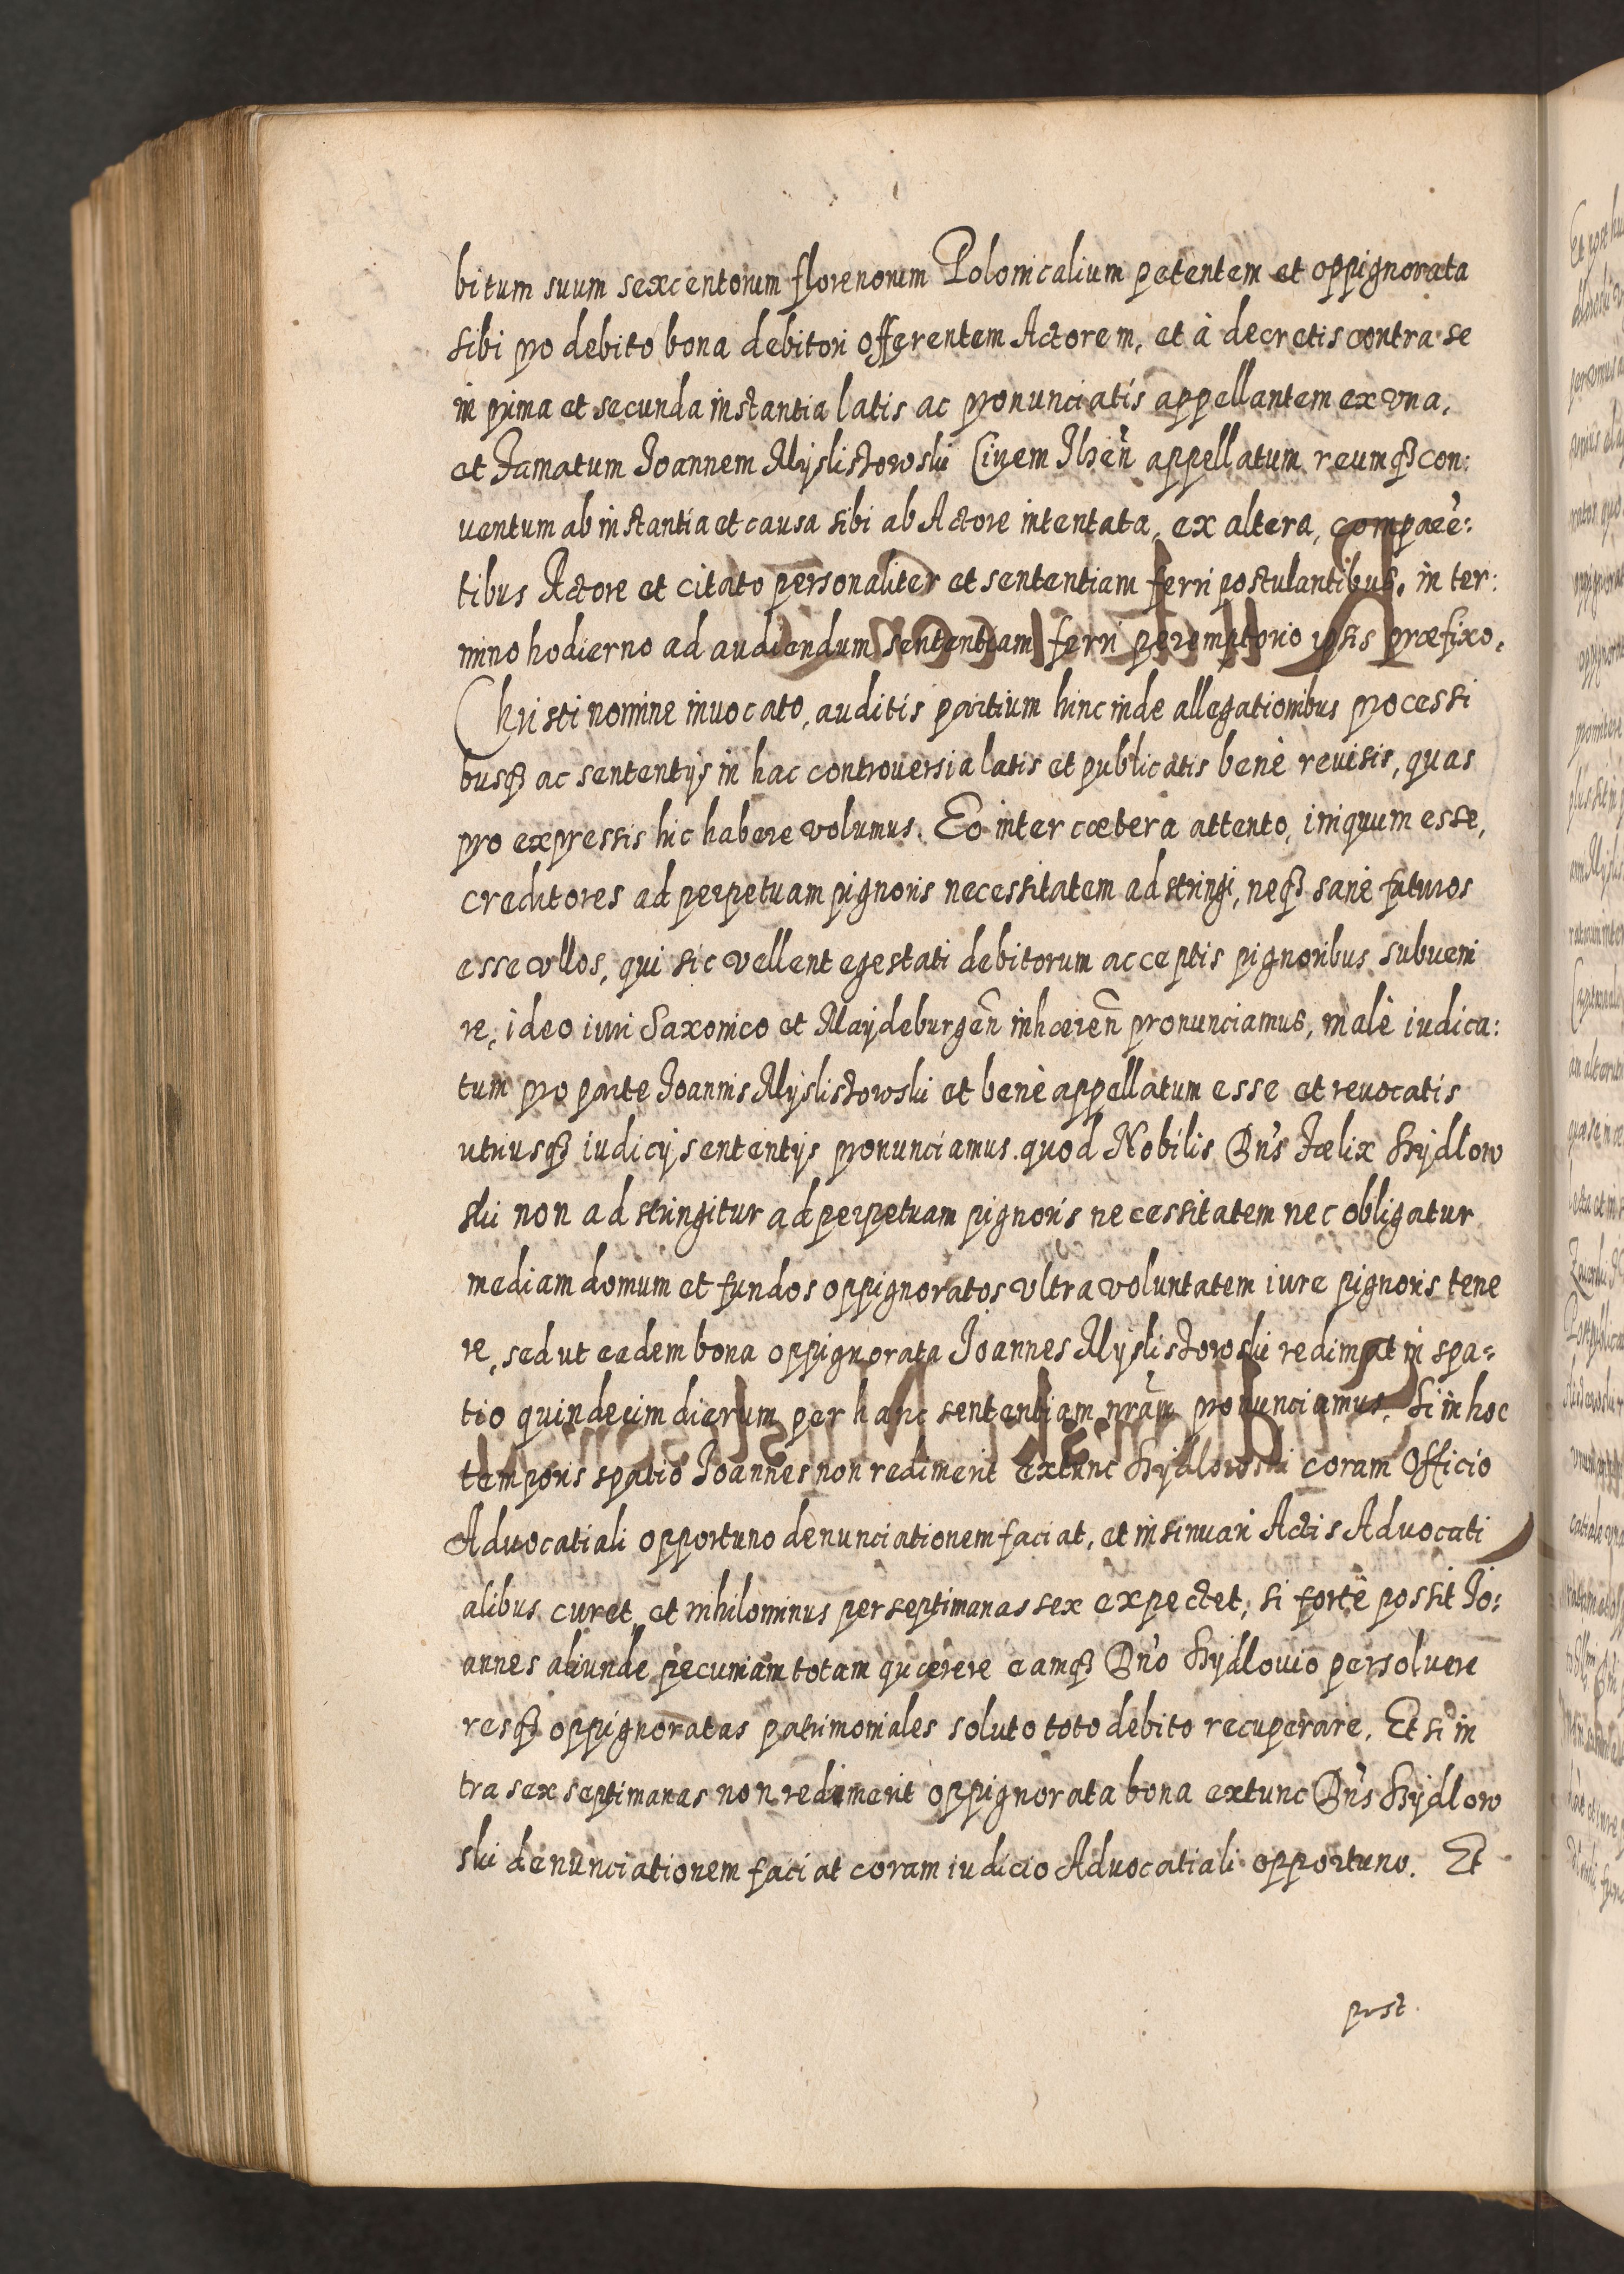 bitum suum sexcentorum florenorum Polonicalium petentem et oppignorata
sibi pro debito bona debitori offerentem Actorem, et à decretis contra se
in prima et secunda instantia latis ac pronunciatis appellantem ex vna,
et Famatum Joannem Myslistowski Ciuem Ilzeñ appellatum reumqȝ con:
uentum ab instantia et causa sibi ab Actore intentata, ex altera, compareẽ:
tibus Actore et citato personaliter et sententiam ferri postulantibus, in ter:
mino hodierno ad audiendum sententiam ferri peremptorio ipsis præfixo,
Christi nomine inuocato, auditis partium hinc inde allegationibus processi
busqȝ ac sententijs in hac controuersia latis et publicatis benè reuisis, quas
pro expressis hic habere volumus. Eo inter cœtera attento, iniquum esse,
creditores ad perpetuam pignoris necessitatem adstringi, neqȝ sanè futuros
esse vllos, qui sic vellent egestati debitorum acceptis pignoribus subueni
re, ideo iuri Saxonico et Maydeburgeñ inhæreñ pronunciamus, malè iudica:
tum pro parte Joannis Myslistowski et benè appellatum esse et reuocatis
utriusqȝ iudicij sententijs pronunciamus. quod Nobilis Dñs Fœlix Szydlow
ski non adstringitur ad perpetuam pignoris necessitatem nec obligatur
mediam domum et fundos oppignoratos vltra voluntatem iure pignoris tene
re, sed ut eadem bona oppignorata Joannes Myslistowski redimat in spa=
tio quindecim dierum per hanc sententiam nr̃am pronunciamus. Si in hoc
temporis spatio Joannes non redimerit extunc Szydlowski coram Officio
Aduocatiali opportuno denunciationem faciat, et insinuari Actis Aduocati
alibus curet, et nihilominus per septimanas sex expectet, si fortè possit Jo:
annes aliunde pecuniam totam quœrere eamqȝ Dño Szydlouio persoluere
resqȝ oppignoratas patrimoniales soluto toto debito recuperare. Et si in
tra sex septimanas non redimerit oppignorata bona extunc Dñs Szydlow
ski denunciationem faciat coram iudicio Aduocatiali opportuno. Et
post